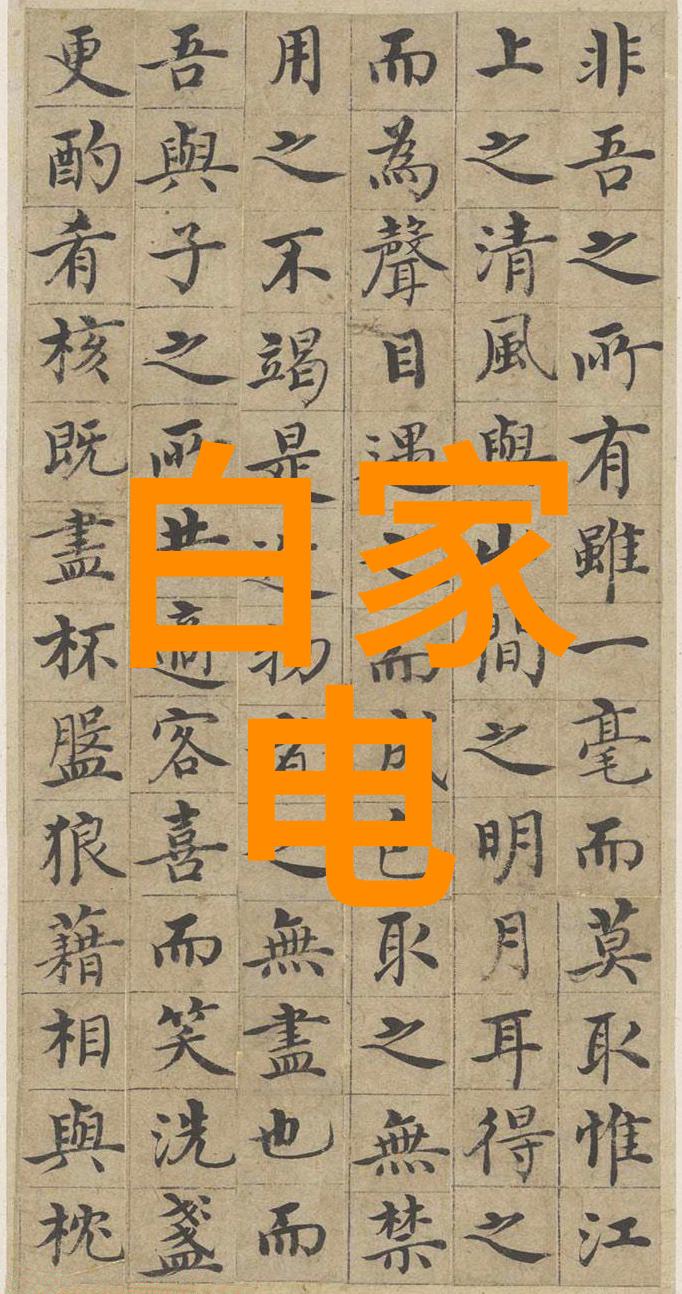 非吾之所有雖一毫而莫取惟江
上之清風與山間之明月耳得之
而為聲目遇之而成色取之無禁
用之不竭是造物者之無盡也而
吾與子之所共適客喜而笑洗盞
更酌肴核既盡杯盤狼藉相與枕
白家
电